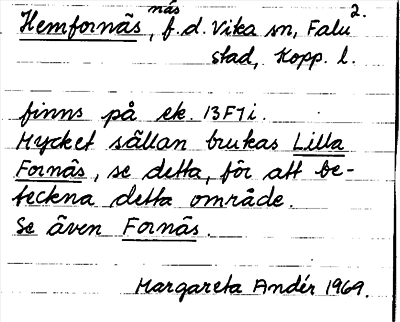 2.
näs
Hemfornäs, f.d. Vika sn, Falu
stad, Kopp. l.
finns på ek. 13F7i.
Mycket sällan brukas Lilla
Fornäs, se detta, för att be-
teckna detta område.
Se även Fornäs.
Margareta Andér 1969.